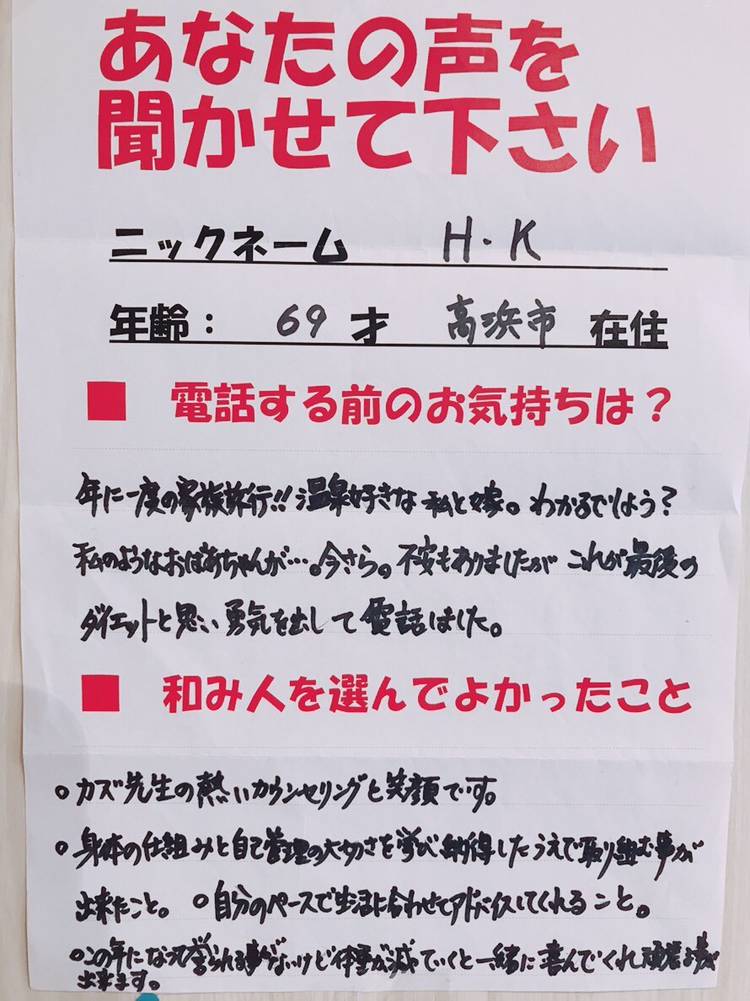 あなたの声を
聞かせて下さい
ニックネーム H.K
年齢： 69 才 高浜市 在住
■ 電話する前のお気持ちは？
年に一度の家族旅行!!温泉好きな私と嫁。わかるでしょう？
私のようなおばあちゃんが…。今さら。不安もありましたがこれが最後の
ダイエットと思い勇気を出して電話しました。
■ 和み人を選んでよかったこと
○カズ先生の熱いカウンセリングと笑顔です。
○身体の仕組みと自己管理の大切さを学び納得したうえで取り組む事が
出来たこと。○自分のペースで生活に合わせてアドバイスしてくれること。
○この年になって誉られる事がないけど体重が減っていくと一緒に喜んでくれ頑張る事が
出来ます。